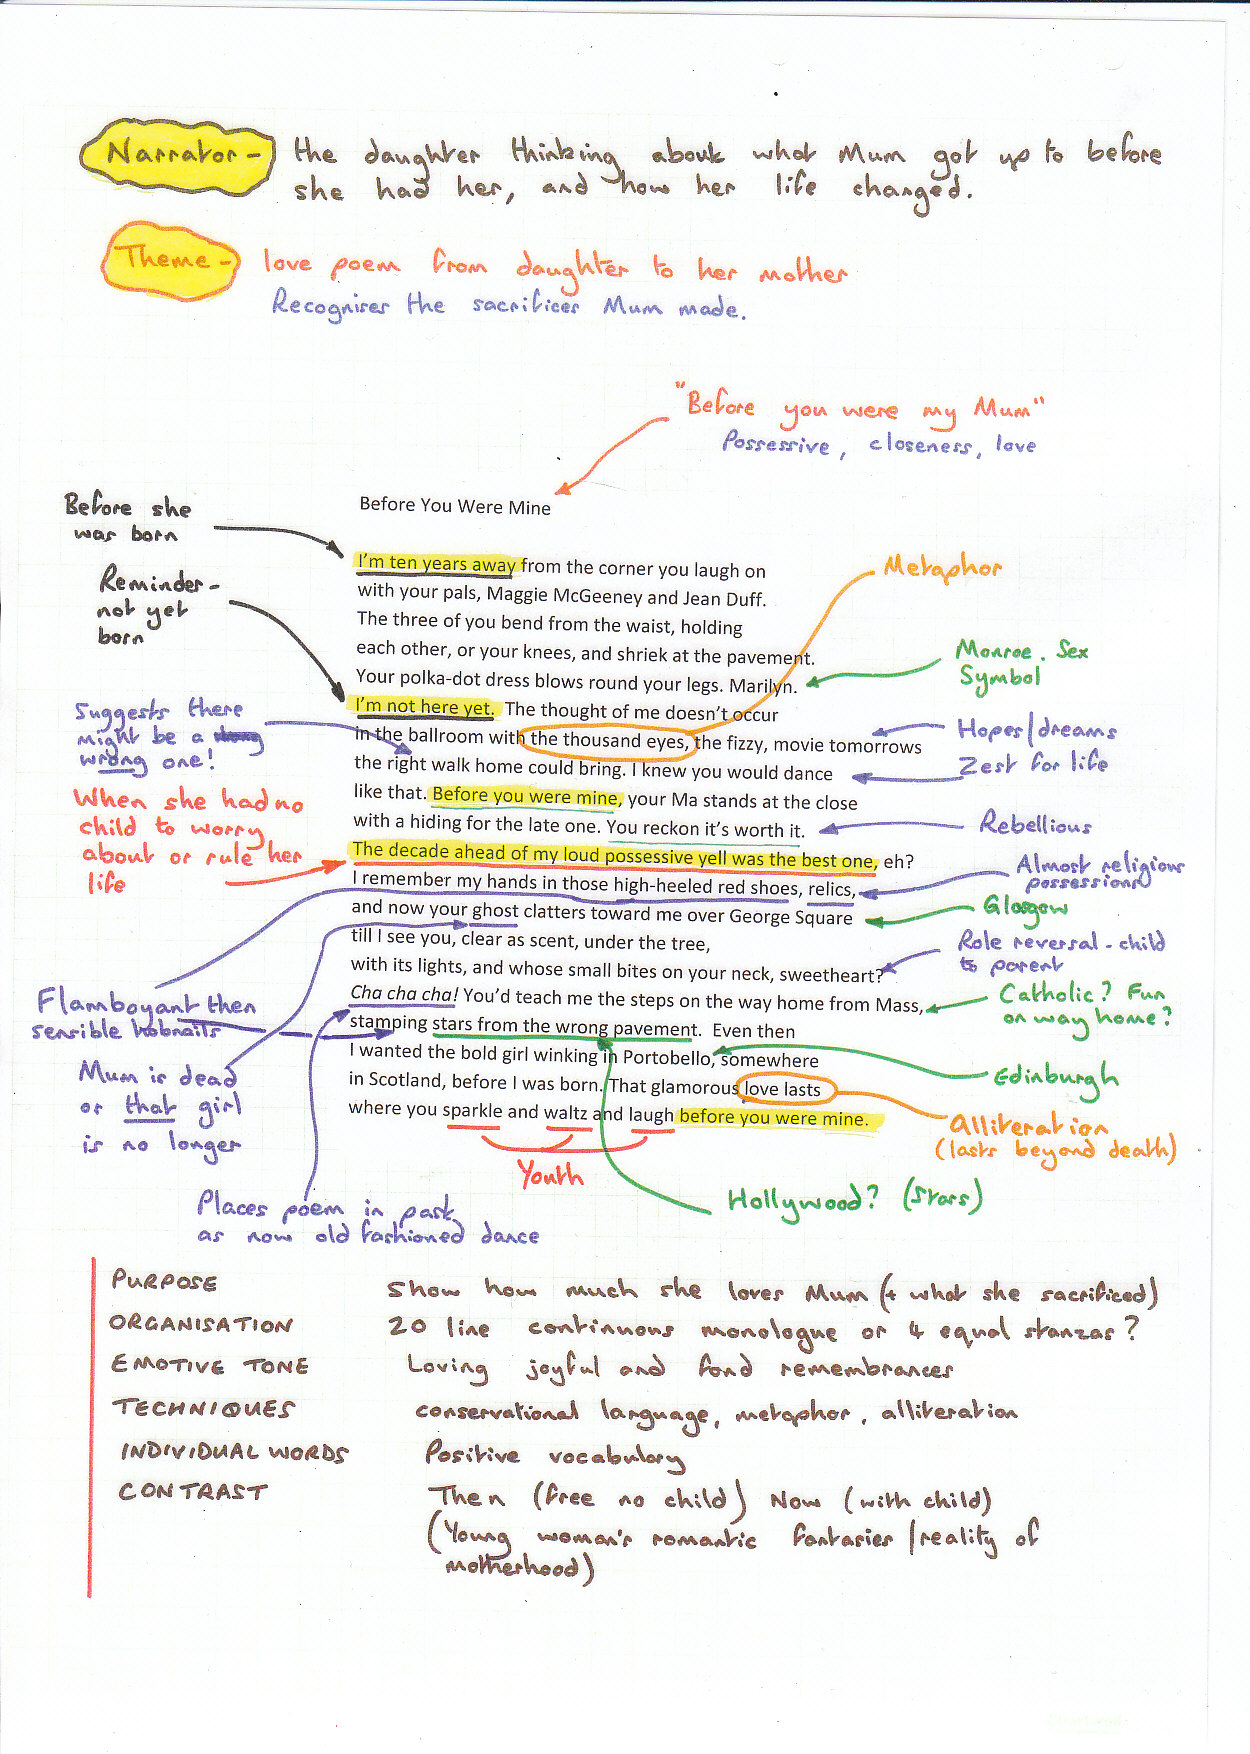 Narrator - the daughter thinking about what Mum got up to before
she had her, and how her life changed.
Theme - love poem from daughter to her mother
Recognises the sacrifices Mum made.
"Before you were my Mum"
Possessive, closeness, love
Before You Were Mine
Before she
was born
I'm ten years away from the corner you laugh on
Metaphor
Reminder -
not yet
born
with your pals, Maggie McGeeney and Jean Duff.
The three of you bend from the waist, holding
each other, or your knees, and shriek at the pavement.
Monroe. Sex
Symbol
Your polka-dot dress blows round your legs. Marilyn.
I'm not here yet. The thought of me doesn't occur
Suggests there
might be a
wrong one!
in the ballroom with the thousand eyes, the fizzy, movie tomorrows
Hopes/dreams
the right walk home could bring. I knew you would dance
Zest for life
When she had no
child to worry
about or rule her
life
like that. Before you were mine, your Ma stands at the close
with a hiding for the late one. You reckon it's worth it.
Rebellious
The decade ahead of my loud possessive yell was the best one, eh?
I remember my hands in those high-heeled red shoes, relics,
Almost religious
possessions
and now your ghost clatters toward me over George Square
Glasgow
till I see you, clear as scent, under the tree,
Role reversal - child
to parent
with its lights, and whose small bites on your neck, sweetheart?
Flamboyant then
sensible hobnails
Cha cha cha! You'd teach me the steps on the way home from Mass,
Catholic? Fun
on way home?
stamping stars from the wrong pavement. Even then
I wanted the bold girl winking in Portobello, somewhere
Edinburgh
Mum is dead
or that girl
is no longer
in Scotland, before I was born. That glamorous love lasts
where you sparkle and waltz and laugh before you were mine.
Alliteration
(lasts beyond death)
Youth
Hollywood? (stars)
Places poem in past
as now old fashioned dance
PURPOSE Show how much she loves Mum (+ what she sacrificed)
ORGANISATION 20 line continuous monologue or 4 equal stanzas?
EMOTIVE TONE Loving joyful and fond remembrances
TECHNIQUES conservational language, metaphor, alliteration
INDIVIDUAL WORDS Positive vocabulary
CONTRAST Then (free no child) Now (with child)
(Young woman's romantic fantasies / reality of
motherhood)